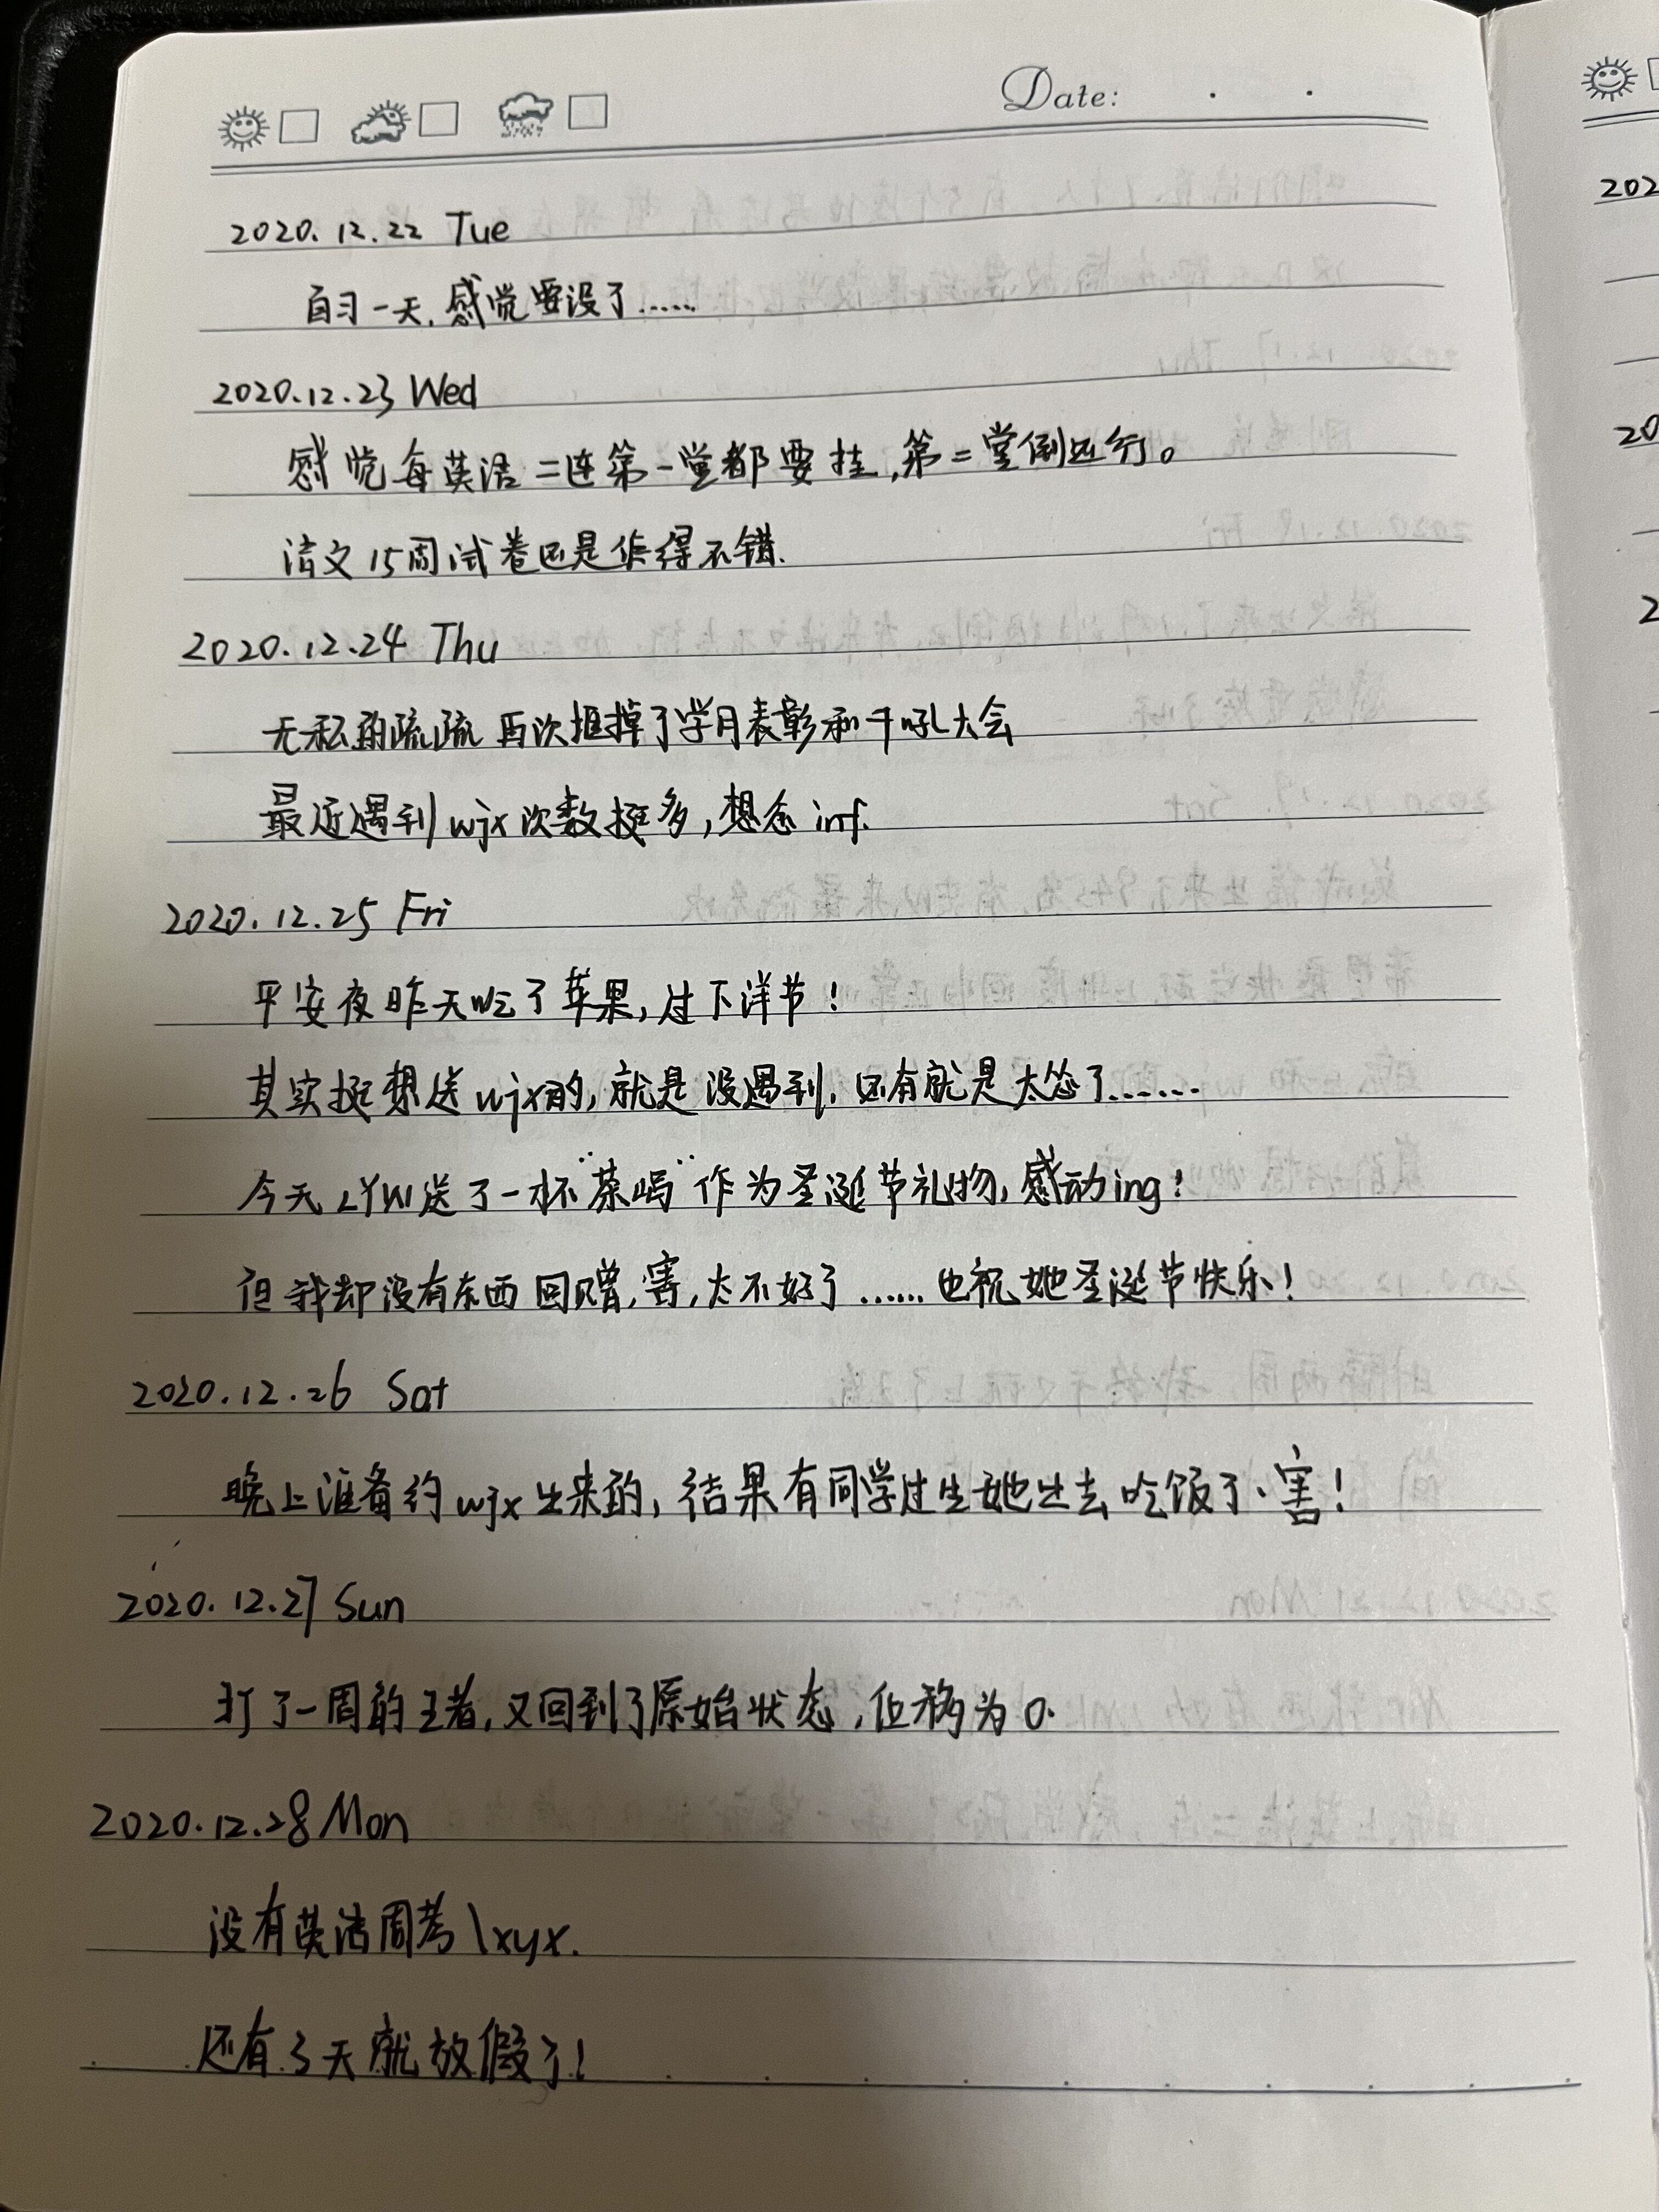 Date: . .
2020.12.22 Tue
自习一天,感觉要没了……
2020.12.23 Wed
感觉每英语二连第一堂都要挂,第二堂倒还行。
语文15周试卷还是作得不错.
2020.12.24 Thu
无私的疏疏再次推掉了学月表彰和千吼大会
最近遇到wjx次数挺多,想念inf.
2020.12.25 Fri
平安夜昨天吃了苹果,过下洋节!
其实挺想送wjx的,就是没遇到,还有就是太怂了……
今天LYW送了一杯"茶屿"作为圣诞节礼物,感动ing!
但我却没有东西回赠,害,太不好了……也祝她圣诞节快乐!
2020.12.26 Sat
晚上准备约wjx出来的,结果有同学过生她出去吃饭了、害!
2020.12.27 Sun
打了一周的王者,又回到了原始状态,位移为0.
2020.12.28 Mon
没有英语周考\xyx.
还有3天就放假了!
202
20
2